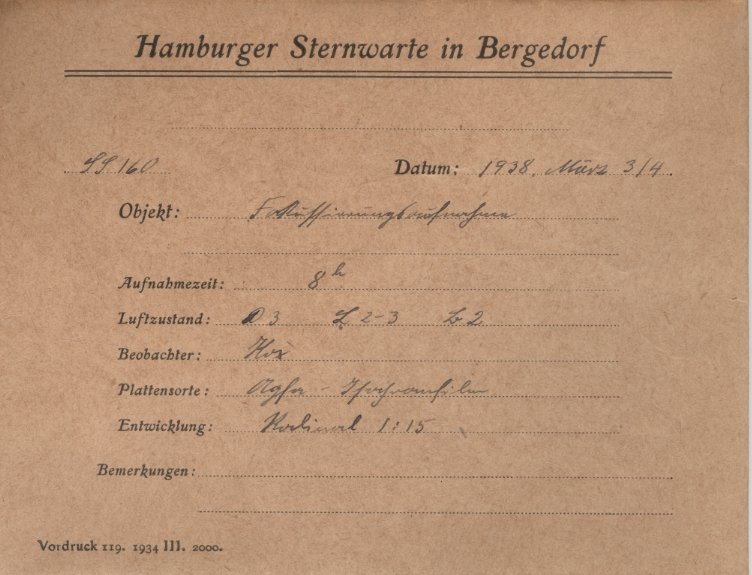 Hamburger Sternwarte in Bergedorf
SS 160 Datum: 1938. März 3/4.
Objekt: Fokussierungsaufnahme
Aufnahmezeit: 8h
Luftzustand: D 3 L 2-3 B 2
Beobachter:
Plattensorte: Agfa - Isochromfilm
Entwicklung: Rodinal 1:15
Bemerkungen:
Vordruck 119. 1934 III. 2000.